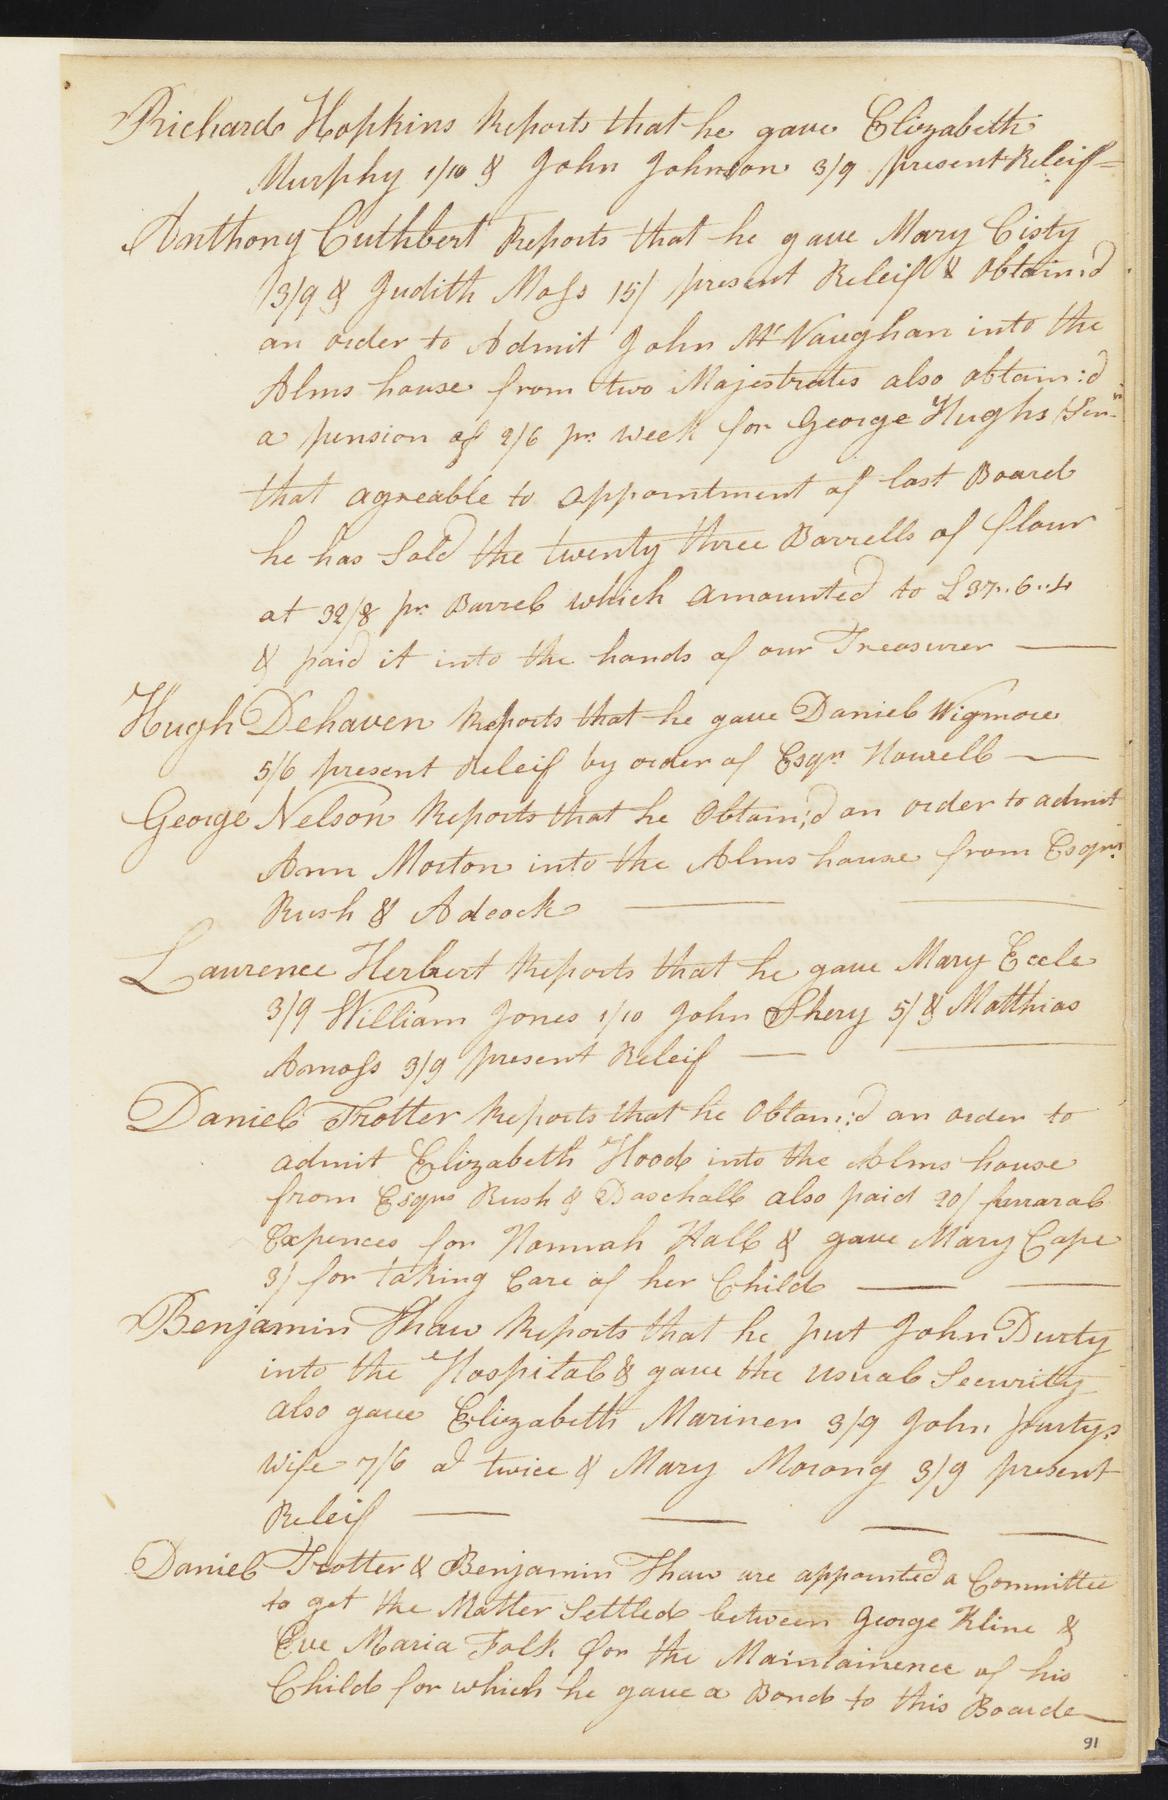 Richard Hopkins Reports that he gave Elizabeth
Murphy 1/10 & John Johnson 3/9 present Releif
Anthony Cuthbert Reports that he gave Mary Cisty
3/9 & Judith Moss 15/ present Releif & Obtain:d
an order to Admit John McVaughan into the
Alms house from two Majestrates also obtain:d
a pension of 2/6 pr. week for George Hughs Senr.
that agreable to appointment of last Board
he has Sold the twenty three Barrells of flour
at 32/8 pr. Barrel which amounted to £37..6..4
& paid it into the hands of our Treasurer
Hugh Dehaven Reports that he gave Daniel Wigmore
5/6 present Releif by order of Esqr. Howell
George Nelson Reports that he Obtain;d an order to admit
Ann Morton into the Alms house from Esqrs.
Rush & Adcock
Laurence Herbert Reports that he gave Mary Eccle
3/9 William Jones 1/10 John Shery 5/ & Matthias
Amoss 3/9 present Releif
Daniel Trotter Reports that he Obtain:d an order to
admit Elizabeth Hood into the Alms house
from Esqrs Rush & Paschall also paid 20/ funaral
Expences for Hannah Hall & gave Mary Cape
3/ for taking Care of her Child
Benjamin Shaw Reports that he put John Durty
into the Hospital & gave the usual Security
also gave Elizabeth Mariner 3/9 John Durtys
wife 7/6 at twice & Mary Morong 3/9 present
Releif
Daniel Trotter & Benjamin Shaw are appointed a Committee
to get the Matter Settled between George Kline &
Eve Maria Falk for the Maintainence of his
Child for which he gave a Bond to this Board
91